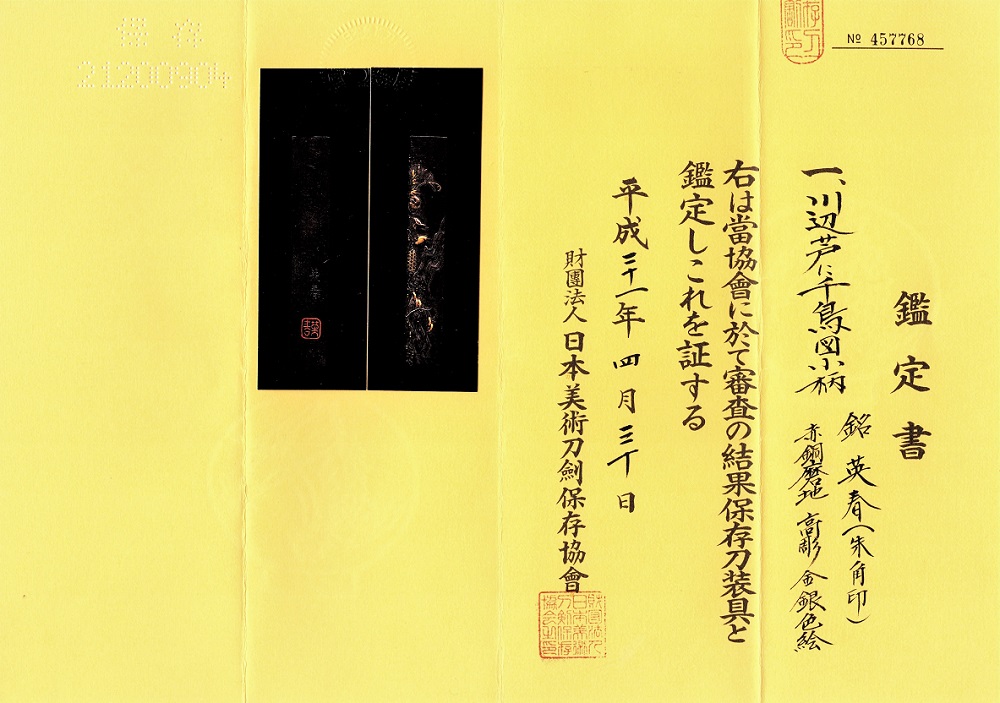 № 457768
鑑定書
一、川辺芦に千鳥図小柄
銘 英春(朱角印)
赤銅磨地 高彫 金銀色絵
右は當協會に於て審査の結果保存刀装具と
鑑定しこれを証する
平成二十一年 四月 三十日
財團法人 日本美術刀劍保存協會
保存
21200904